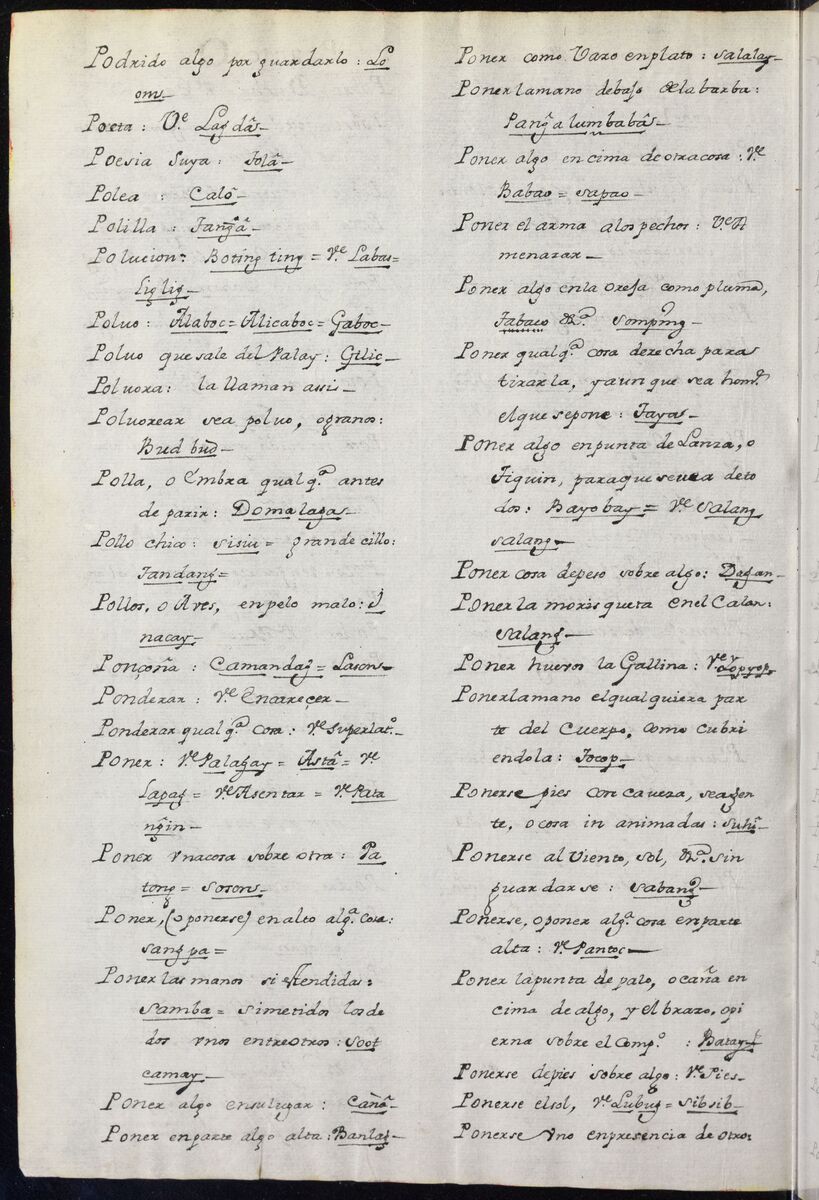 Podrido algo por guardarlo: Lo
om_
Poeta: Vᵉ Lagdâs_
Poesia suya: Jolâ_
Polea: Calô_
Polilla: Tang̃â_
Polucion: Boting ting = Vᵉ Labas=
liglig_
Poluo: Alaboc = Alicaboc = Gaboc_
Poluo que sale del Palay: Gilic_
Poluora: la llaman assi_
Poluorear sea poluo, o granos:
Bud bud_
Polla, o émbra qualq.ᵃ antes
de parir: Domalaga_
Pollo chico: sisiu = grande cillo:
Tandang =
Pollos, o Aves, en pelo malo: I
nacay_
Ponçoña: Camandag = Lason_
Ponderar: Vᵉ Encareçer_
Ponderar qualq.ᵃ cosa: Vᵉ superlat.ᵒ_
Poner: Vᵉ Palagay = Astâ = Vᵉ
Lapag = Vᵉ Asentar = Vᵉ Pata
ng̃in_
Poner vna cosa sobre otra: Pa
tong = soson_
Poner, (o ponerse) en alto alg.ᵃ cosa:
sang pa =
Poner las manos si estendidas:
Samba = si metidos los de
dos vnos entre otros: soot
camay_
Poner algo en su lugar: Cañô_
Poner en parte algo alta: Banlag_
Poner como Vaso en plato: salalay_
Poner la mano debajo de la barba:
Pang̃alumbabâ_
Poner algo encima de otra cosa: Vᵉ
Babao = sapao_
Poner el arma a los pechos: Vᵉ A
menazar_
Poner algo en la oreja como pluma,
Tabaco &.ᵃ Somping_
Poner qualq.ᵃ cosa derecha para
tirarla, y aun que sea hom.ᵉ
el que se pone: Taya_
Poner algo en punta de Lanza, o
Tiquin, para que se vea de to
dos: Bayobay = Vᵉ Salang
salang_
Poner cosa de peso sobre algo: Dagan_
Poner la morisqueta en el Calan:
Salang_
Poner huevos la Gallina: Vᵉ
Poner la mano el qualquiera par
te del Cuerpo, como cubri
endola: Tocop_
Ponerse pies con caveza, sea gen
te, o cosa in animadas: Suhî_
Ponerse al Viento, sol, &.ᵃ sin
guardarse: sabang_
Ponerse, o poner alg.ᵃ cosa en parte
alta: Vᵉ Pantoc_
Poner la punta de palo, o caña en
cima de algo, y el brazo, o pi
erna sobre el Comp.ᵒ : Batay_
Ponerse de pies sobre algo: Vᵉ Pies_
Ponerse el sol, Vᵉ Lubug = sibsib_
Ponerse vno en presencia de otro: